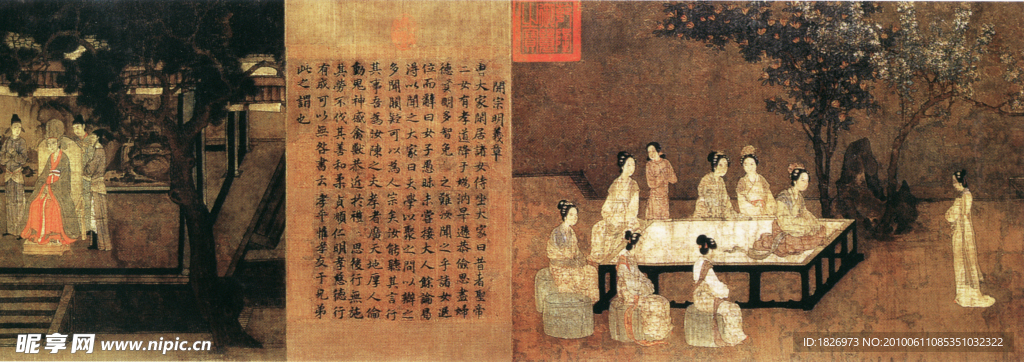 開宗明義章
曹大家閒居諸女侍坐大家曰昔者聖帝
二女有孝道降于媯汭卑遜恭儉思盡婦
德賢明多智免之難汝聞之乎諸女退
位而辭曰女子愚昧未嘗接大人餘論曷
得以聞之大家曰夫學以聚之問以辯之
多聞闕疑可以為人宗矣汝能聽其言行
其事吾為汝陳之夫孝者廣天地厚人倫
動鬼神感禽獸恭近於禮三思後行無施
其勞不伐其善和柔貞順仁明孝慈德行
有成可以無咎書云孝乎惟孝友于兄弟
此之謂也
昵享网 www.nipic.cn
ID:1826973 NO:20100611085351032322